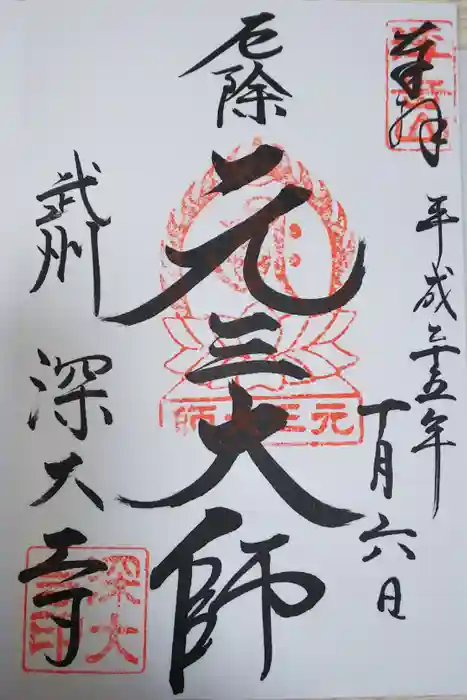 奉拝
平成二十五年
月六日
厄除
元三大師
武州
深大寺
元三大師
深大寺印